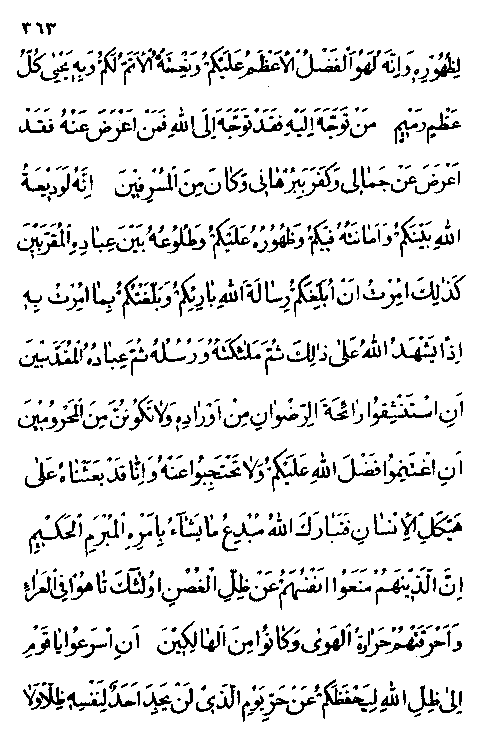 ٣٦٣
لِظُهُورِهِ وَاِنَّهُ لَهُوَ الْفَضْلُ الْاَعْظَمُ عَلَيْكُمْ وَنِعْمَتُهُ الْاَتَمُّ لَكُمْ وَبِهِ يَحْيٰى كُلُّ
عَظْمٍ رَمِيمٍ مَنْ تَوَجَّهَ اِلَيْهِ فَقَدْ تَوَجَّهَ اِلَى اللهِ فَمَنْ اَعْرَضَ عَنْهُ فَقَدْ
اَعْرَضَ عَنْ جَمَالِى وَكَفَرَ بِبُرْهَانِى وَكَانَ مِنَ الْمُسْرِفِينَ اِنَّهُ لَوَدِيعَةُ
اللهِ بَيْنَكُمْ وَاَمَانَتُهُ فِيكُمْ وَظُهُورُهُ عَلَيْكُمْ وَطُلُوعُهُ بَيْنَ عِبَادِهِ الْمُقَرَّبِينَ
كَذٰلِكَ اُمِرْتُ اَنْ اُبَلِّغَكُمْ رِسَالَةَ اللهِ بَارِئِكُمْ وَبَلَّغْتُكُمْ بِمَا اُمِرْتُ بِهِ
اِذًا يَشْهَدُ اللهُ عَلٰى ذٰلِكَ ثُمَّ مَلٰئِكَتُهُ وَرُسُلُهُ ثُمَّ عِبَادُهُ الْمُقَدَّسِينَ
اَنِ اسْتَنْشِقُوا رَائِحَةَ الرِّضْوَانِ مِنْ اَوْرَادِهِ وَلَا تَكُونُنَّ مِنَ الْمَحْرُومِينَ
اَنِ اغْتَنِمُوا فَضْلَ اللهِ عَلَيْكُمْ وَلَا تَحْتَجِبُوا عَنْهُ وَاِنَّا قَدْ بَعَثْنَاهُ عَلٰى
هَيْكَلِ الْاِنْسَانِ فَتَبَارَكَ اللهُ مُبْدِعُ مَا يَشَآءُ بِاَمْرِهِ الْمُبْرَمِ الْحَكِيمِ
اِنَّ الَّذِينَهُمْ مَنَعُوا اَنْفُسَهُمْ عَنْ ظِلِّ الْغُصْنِ اُولٰئِكَ تَاهُوا فِى الْعَرَاءِ
وَاَحْرَقَتْهُمْ حَرَارَةُ الْهَوٰى وَكَانُوا مِنَ الْهَالِكِينَ اَنِ اسْرَعُوا يَا قَوْمِ
اِلٰى ظِلِّ اللهِ لِيَحْفَظَكُمْ عَنْ حَرِّ يَوْمِ الَّذِى لَنْ يَجِدَ اَحَدٌ لِنَفْسِهِ ظِلًّا وَلَا